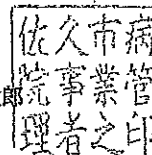 佐久市病
院事業管
理者之印
郎